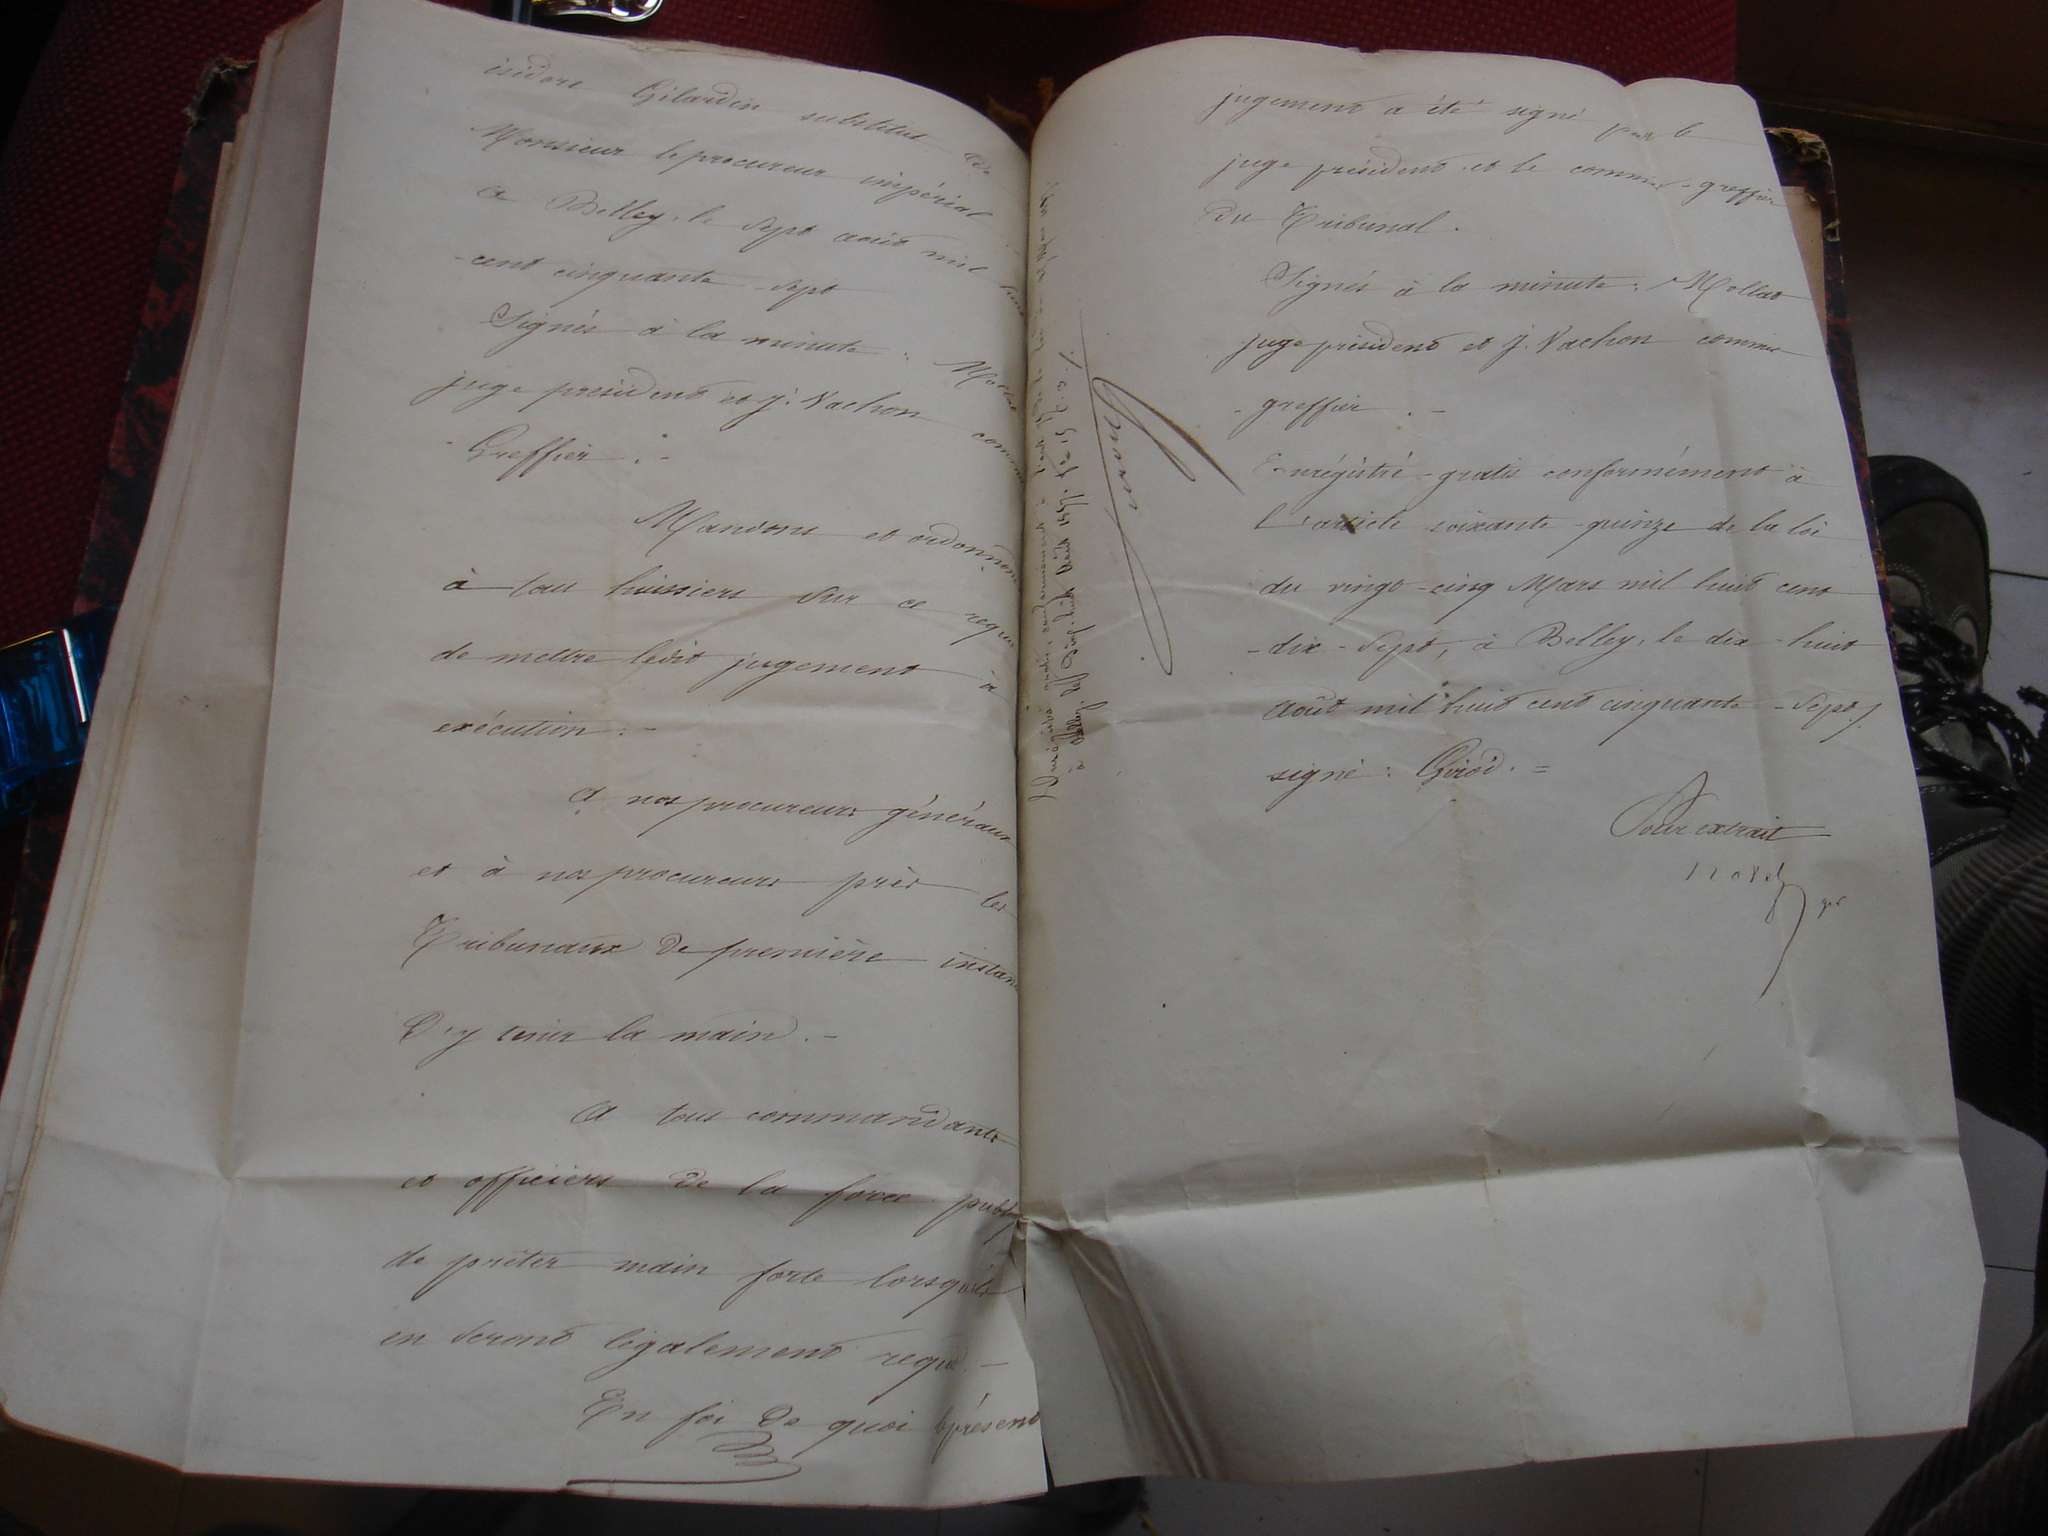 isidore Gilardin substitut de
Monsieur le procureur impérial
à Belley, le sept août mil huit
-cent cinquante-sept
Signés à la minute : Mollat
juge président et J. Vachon commis
-Greffier .-
Mandons et ordonnons
à tous huissiers sur ce requis
de mettre ledit jugement à
exécution .-
A nos procureurs généraux
et à nos procureurs près les
Tribunaux de première instan
D'y tenir la main .-
A tous commandants
et officiers de la force publ
de prêter main forte lorsqu'ils
en seront légalement requis .-
En foi de quoi le présent
jugement a été signé par le
juge président et le commis-greffier
du Tribunal .
Signés à la minute : Mollat
juge président et J. Vachon commis
-greffier .-
Enrégistré gratis conformément à
l'article soixante-quinze de la loi
du vingt-cinq Mars mil huit cent
-dix-sept, à Belley, le dix-huit
août mil huit cent cinquante-sept /
signé : Guiod . =
Pour extrait